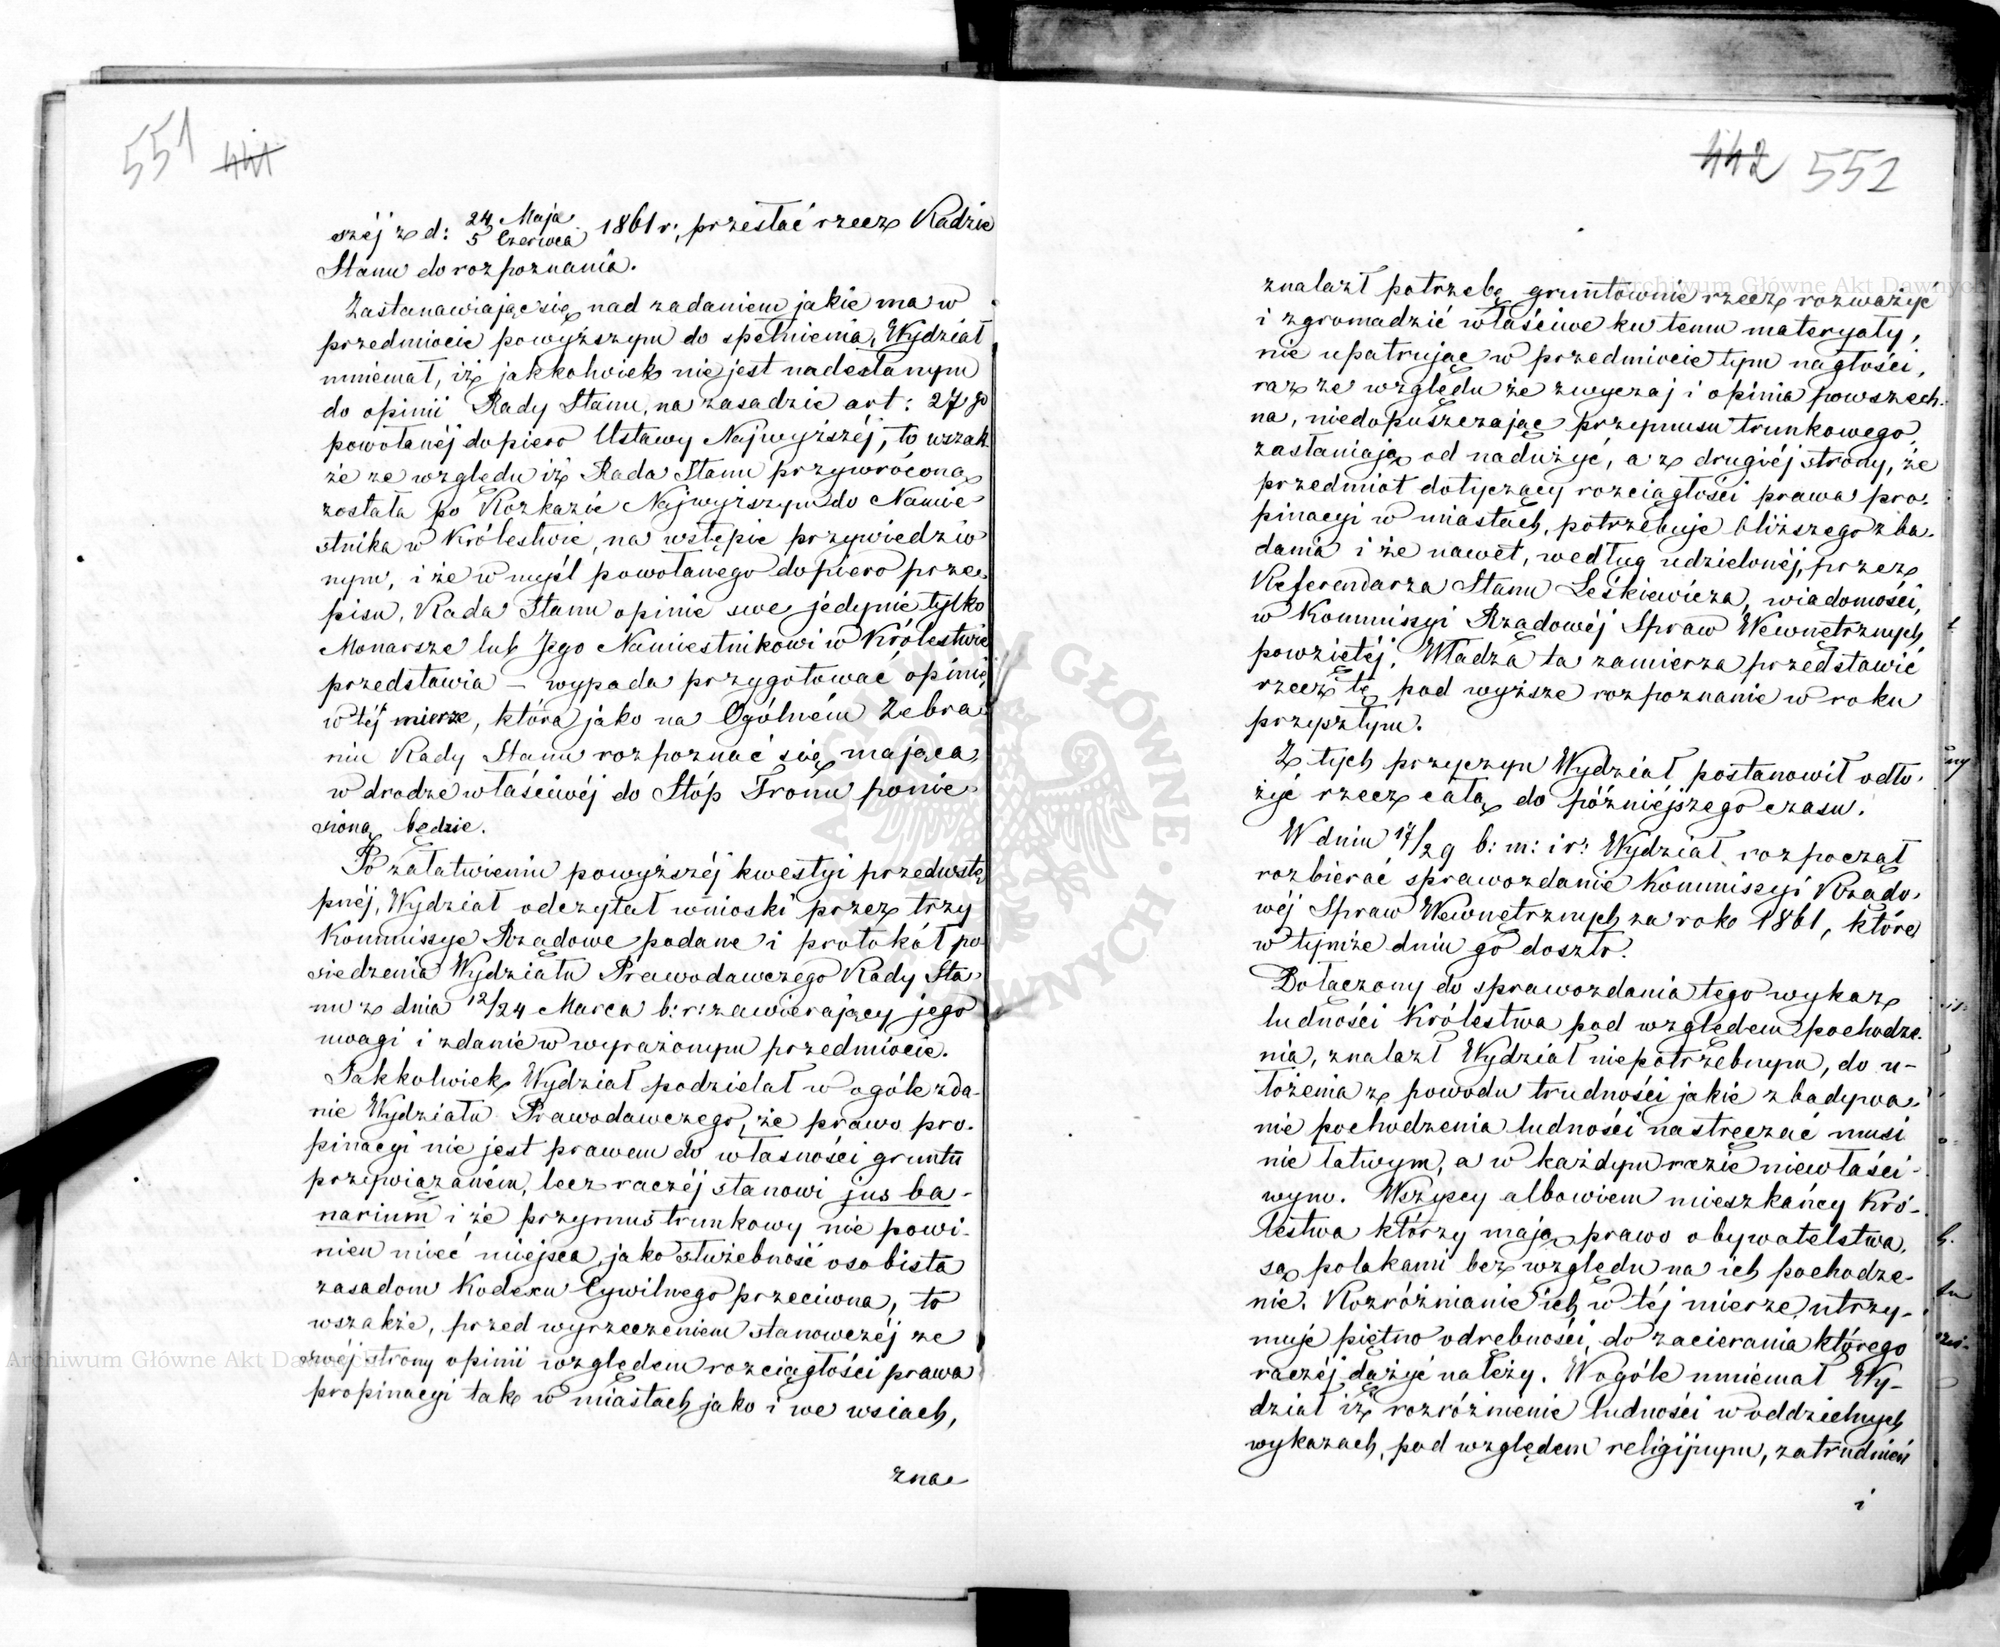 551 441
széj z d: 24 Maja 1861 r., przesłać rzecz Radzie
5 Czerwca
Stanu do rozpoznania.
Zastanawiając się nad zadaniem jakie ma w
przedmiocie powyższym do spełnienia, Wydział
mniemał, iż jakkolwiek nie jest nadesłanym
do opinii Rady Stanu, na zasadzie art: 27 go
powołanéj dopiero Ustawy Najwyższéj, to wszak
że ze względu iż Rada Stanu przywróconą
została po Rozkazie Najwyższym do Namie-
stnika w Królestwie, na wstępie przywiedzio
nym, i że w myśl powołanego dopiero prze-
pisu, Rada Stanu opinie swe jedynie tylko
Monarsze lub Jego Namiestnikowi w Królestwie
przedstawia – wypada przygotować opinię
w téj mierze, która jako na Ogólném Zebra
niu Rady Stanu rozpoznać się mająca,
w drodze właściwéj do Stóp Tronu ponie-
sioną będzie.
Po załatwieniu powyższéj kwestyi przedwstę
pnéj, Wydział odczytał wnioski przez trzy
Kommissye Rządowe podane i protokół po
siedzenia Wydziału Prawodawczego Rady Sta-
nu z dnia 12/24 Marca b: r: zawierający jego
uwagi i zdanie w wyrażonym przedmiocie.
Jakkolwiek Wydział podzielał w ogóle zda-
nie Wydziału Prawodawczego, że prawo pro-
pinacyi nie jest prawem do własności gruntu
przywiązaném, lecz raczéj stanowi jus ba-
narium i że przymus trunkowy nie powi-
nien mieć miejsca, jako służebność osobista
zasadom Kodexu Cywilnego przeciwna, to
wszakże, przed wyrzeczeniem stanowczéj ze
swéj strony opinii względem rozciągłości prawa
propinacyi tak w miastach jako i we wsiach,
zna-
442 552
znalazł potrzebę gruntownie rzecz rozważyć
i zgromadzić właściwe ku temu materyały,
nie upatrując w przedmiocie tym nagłości,
raz ze względu że zwyczaj i opinia powszech-
na, niedopuszczając przymusu trunkowego,
zasłaniają od nadużyć, a z drugiéj strony, że
przedmiot dotyczący rozciągłości prawa pro-
pinacyi w miastach, potrzebuje bliższego zba-
dania i że nawet, według udzielonéj, przez
Referendarza Stanu Leśkiewicza, wiadomości,
w Kommissyi Rządowéj Spraw Wewnętrznych
powziętéj, Władza ta zamierza przedstawić
rzecz tę pod wyższe rozpoznanie w roku
przyszłym.
Z tych przyczyn Wydział postanowił odło-
żyć rzecz całą do późniéjszego czasu.
W dniu 17/29 b: m: i r: Wydział rozpoczął
rozbierać sprawozdanie Kommissyi Rządo-
wéj Spraw Wewnętrznych za rok 1861, które
w tymże dniu go doszło.
Dołączony do sprawozdania tego wykaz
ludności Królestwa pod względem pochodze-
nia, znalazł Wydział niepotrzebnym, do u-
łożenia z powodu trudności jakie zbadywa-
nie pochodzenia ludności nastręczać musi
nie łatwym, a w każdym razie niewłaści-
wym. Wszyscy albowiem mieszkańcy Kró-
lestwa którzy mają prawo obywatelstwa,
są polakami bez względu na ich pochodze-
nie. Rozróżnianie ich w téj mierze utrzy-
muje piętno odrębności, do zacierania którego
raczéj dążyć należy. W ogóle mniemał Wy-
dział iż rozróżnienie ludności w oddzielnych
wykazach, pod względem religijnym, zatrudnień
i
Archiwum Główne Akt Dawnych